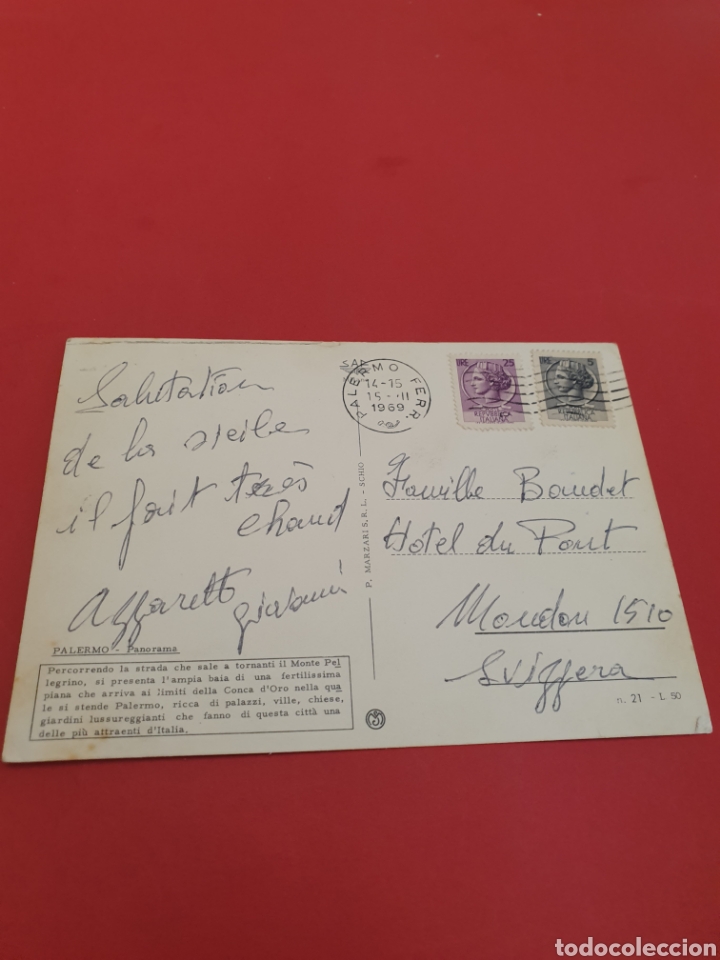 Salutation
de la sicile
il fait très
chaud
Azzaretto
giovanni
PALERMO - Panorama
Percorrendo la strada che sale a tornanti il Monte Pel
legrino, si presenta l'ampia baia di una fertilissima
piana che arriva ai limiti della Conca d'Oro nella qua
le si stende Palermo, ricca di palazzi, ville, chiese,
giardini lussureggianti che fanno di questa città una
delle più attraenti d'Italia.
P. MARZARI S. R. L. - SCHIO
PALERMO FERR
14-15
15 - II
1969
LIRE 25
REPVBBLICA
ITALIANA
LIRE 5
REPVBBLICA
ITALIANA
Famille Baudet
Hotel du Pont
Moudon 1510
Svizzera
n. 21 - L 50
todocoleccion